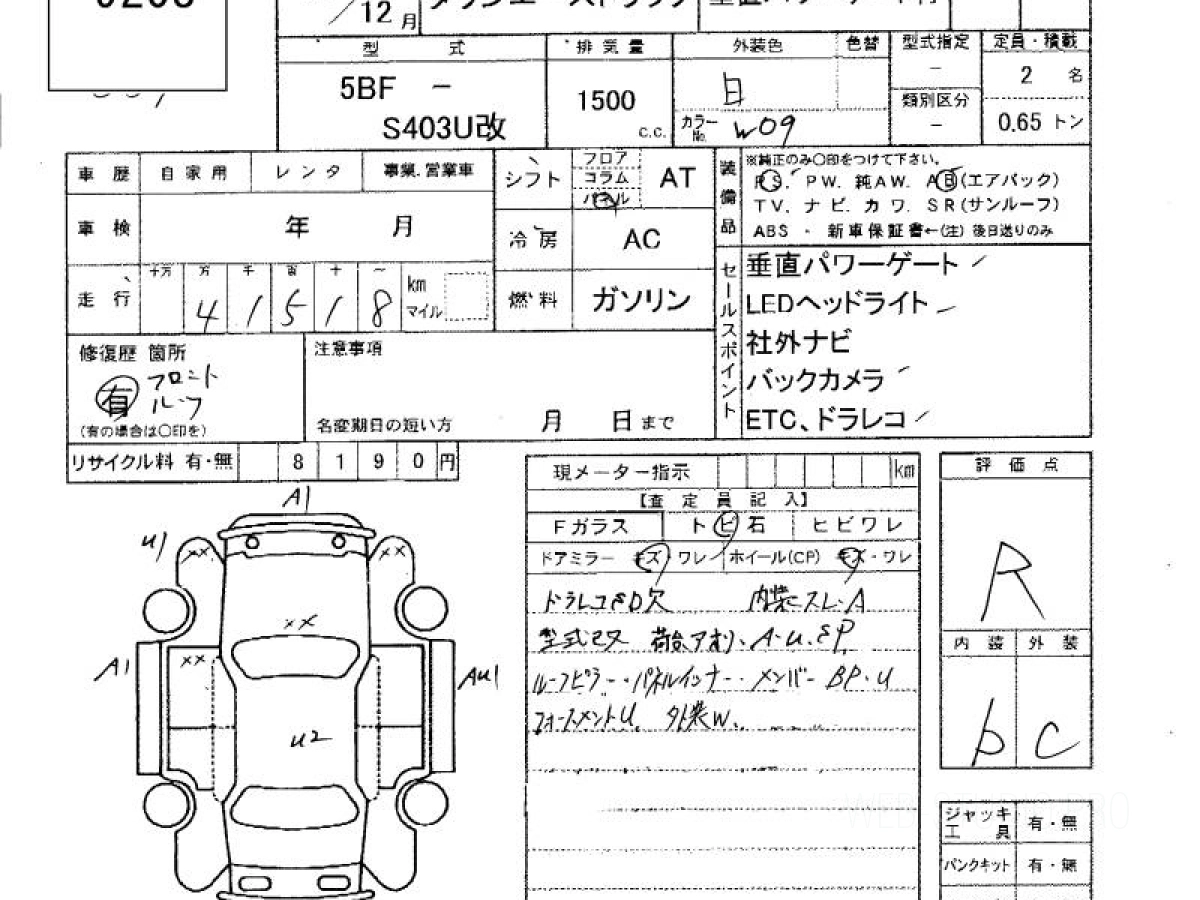 12月
型 式 排気量 外装色 色替 型式指定 定員・積載
5BF - 1500 c.c. 白 - 2 名
S403U改 カラーNo. W09 類別区分 - 0.65 トン
車歴 自家用 レンタ 事業.営業車 シフト フロア コラム パネル AT
装備品 ※純正のみ〇印をつけて下さい。
PS. PW. 純AW. AB(エアバック)
TV. ナビ. カワ. SR(サンルーフ)
ABS ・ 新車保証書←(注) 後日送りのみ
車検 年 月 冷房 AC
走行 十万 万 千 百 十 一 km マイル
4 1 5 1 8
燃料 ガソリン
セールスポイント
垂直パワーゲート
LEDヘッドライト
社外ナビ
バックカメラ
ETC、ドラレコ
修復歴 箇所
有 フロント
ルーフ
(有の場合は〇印を)
注意事項
名変期日の短い方 月 日まで
リサイクル料 有・無 8 1 9 0 円
現メーター指示 km
【査定員記入】
Fガラス トビ石 ヒビワレ
ドアミラー キズ・ワレ ホイール(CP) キズ・ワレ
ドラレコ 欠 内装スレ.A
荷台アオリ.A.U.
ルーフピラー・パネルインナー・メンバー BP.U
外装W.
評価点
R
内装 外装
b c
ジャッキ工具 有・無
パンクキット 有・無
A1
U1
XX
XX
XX
A1
XX
AU1
U2